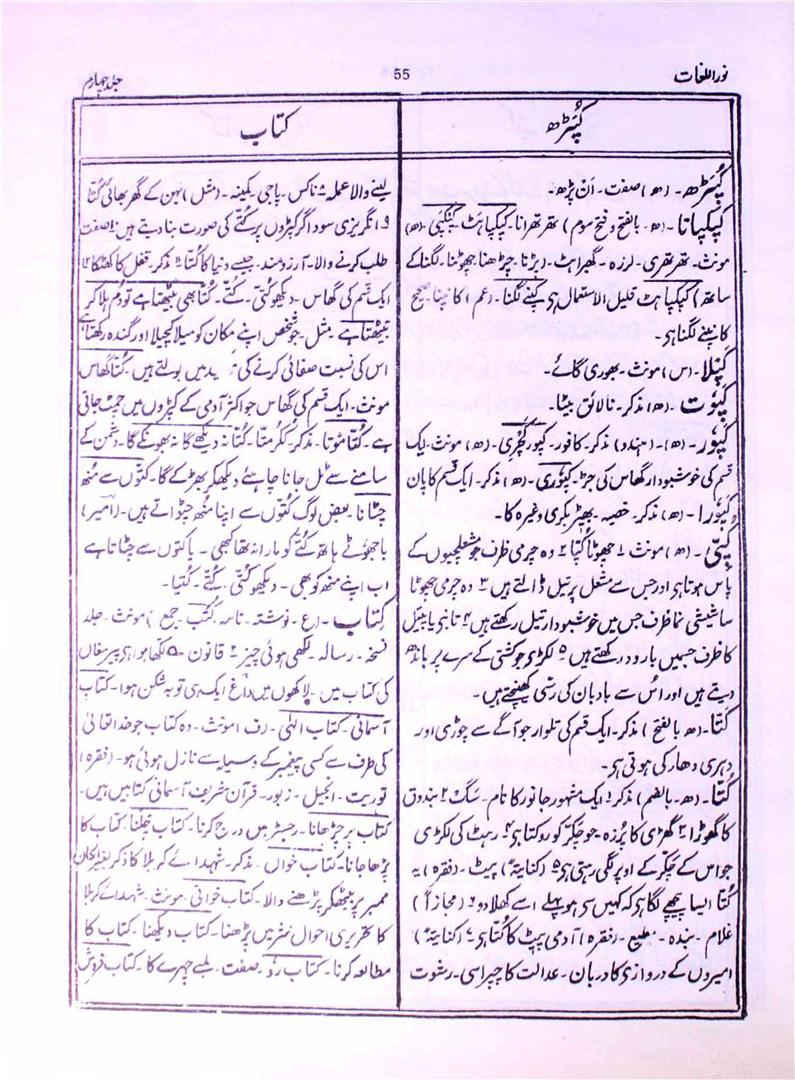 نور اللغات
55
جلد چہارم
کپڑھ
کپڑھ۔ (ھ) صفت۔ ان پڑھ۔
کپکپانا۔ (ھ۔ بالفتح و فتح سوم) تھرتھرانا۔ کپکپاہٹ۔ کپکپی (ھ)
مونث۔ تھرتھری۔ لرزہ۔ گھبراہٹ۔ (پڑنا۔ چڑھنا۔ چھوٹنا۔ لگنا کے
ساتھ) کپکپاہٹ قلیل الاستعمال ہی کپنے لگنا۔ (عم) کانپنا۔ صحیح
کانپنے لگنا ہی۔
کپلا۔ (س) مونث۔ بھوری گائے۔
کپوت (ھ) مذکر۔ نالائق بیٹا۔
کپور۔ (ھ)۔ (ہندو) مذکر۔ کافور۔ کپور کچری۔ (ھ) مونث۔ ایک
قسم کی خوشبودار گھاس کی جڑ۔ کپوری۔ (ھ) مذکر۔ ایک قسم کا پان
کپورا۔ (ھ) مذکر۔ خصیہ۔ بھیڑ بکری وغیرہ کا۔
کپی۔ (ھ) مونث ۱ چھوٹا کپا ۲ وہ چرمی ظرف جو مشعلچیوں کے
پاس ہوتا ہی اور جس سے مشعل پر تیل ڈالتے ہیں ۳ وہ چرمی چھوٹا
سا شیشی نما ظرف جس میں خوشبودار تیل رکھتے ہیں ۴ تانبے یا پیتل
کا ظرف جسمیں بارود رکھتے ہیں ۵ لکڑی جو کشتی کے سرے پر باندھ
دیتے ہیں اور اُس سے بادبان کی رسّی کھینچتے ہیں۔
کتا۔ (ھ بالفتح) مذکر۔ ایک قسم کی تلوار جو آگے سے چوڑی اور
دہری دھار کی ہوتی ہی۔
کُتّا۔ (ھ۔ بالضم) مذکر ۱ ایک مشہور جانور کا نام۔ سگ ۲ بندوق
کا گھوڑا ۳ گھڑی کا پُرزہ۔ جو چکر کو روکتا ہی ۴ رہٹ کی لکڑی
جو اس کے چکر کے اوپر لگی رہتی ہی ۵ (کنایۃً) پیٹ۔ (فقرہ) یہ
کُتّا ایسا پیچھے لگا ہی کہ کہیں سی ہو پہلے اسے کھلا دو ۶ (مجازاً)
غلام۔ بندہ۔ مطیع۔ (فقرہ) آدمی پیٹ کا کُتّا ہی ۷ (کنایۃً)
امیروں کے دروازی کا دربان۔ عدالت کا چپراسی۔ رشوت
کتاب
لینے والا عملہ ۸ ناکس۔ پاجی۔ کمینہ۔ (مثل) بہن کے گھر بھائی کُتّا
۹ انگریزی سوداگر کپڑوں پر کُتّے کی صورت بنا دیتے ہیں ۱۰ صفت
طلب کرنے والا۔ آرزومند۔ جیسے دنیا کا کُتّا ۱۱ مذکر۔ قفل کا کھٹکا ۱۲
ایک قسم کی گھاس۔ دیکھو کتی۔ کتے۔ کُتّا بھی بیٹھتا ہے تو دُم ہلا کر
بیٹھتا ہے۔ مثل۔ جو شخص اپنے مکان کو میلا کچیلا اور گندہ رکھتا ہے
اس کی نسبت صفائی کرنے کی میں بولتے ہیں۔ کتا گھاس
مونث۔ ایک قسم کی گھاس جو اکثر آدمی کے کپڑوں میں چمٹ جاتی
ہے۔ کتا موتا۔ مذکر۔ ککر متا۔ کتا نہ دیکھے گا نہ بھونکے گا۔ دشمن کے
سامنے سے ٹل جانا چاہئے دیکھکر بھڑکے گا۔ کتوں سے منھ
چٹانا۔ بعض لوگ کتوں سے اپنا منھ چٹواتے ہیں۔ (امیر)
یا جھوٹے ہاتھ کتّے کو مارا نہ تھا کبھی۔ یا کتوں سے چٹاتا ہے
اب اپنے منھ کو بھی۔ دیکھو کتّی۔ کتّے۔ کتیا۔
کتاب۔ (ع۔ نوشتہ۔ نامہ۔ کتب جمع) مونث۔ جلد
نسخہ۔ رسالہ۔ لکھی ہوئی چیز ۲ قانون ۔ لکھا ہوا ہی پیر مغاں
کی کتاب میں۔ لاکھوں میں داغ ایک ہی توبہ شکن ہوا۔ کتاب
آسمانی۔ کتاب الٰہی۔ (ف) مونث۔ وہ کتاب جو خدا تعالیٰ
کی طرف سے کسی پیغمبر کے وسیلہ سے نازل ہوئی ہو۔ (فقرہ)
توریت۔ انجیل۔ زبور۔ قرآن شریف آسمانی کتابیں ہیں۔
کتاب پر چڑھانا۔ رجسٹر میں درج کرنا۔ کتاب چلنا۔ کتاب کا
پڑھا جانا۔ کتاب خواں۔ مذکر۔ شہدائے کربلا کا ذکر بغیر الحان
ممبر پر بیٹھکر پڑھنے والا۔ کتاب خوانی۔ مونث۔ شہدائے کربلا
کا تحریری احوال نثر میں پڑھنا۔ کتاب دیکھنا۔ کتاب کا
مطالعہ کرنا۔ کتاب رو۔ صفت۔ لمبے چہرے کا۔ کتاب فروش